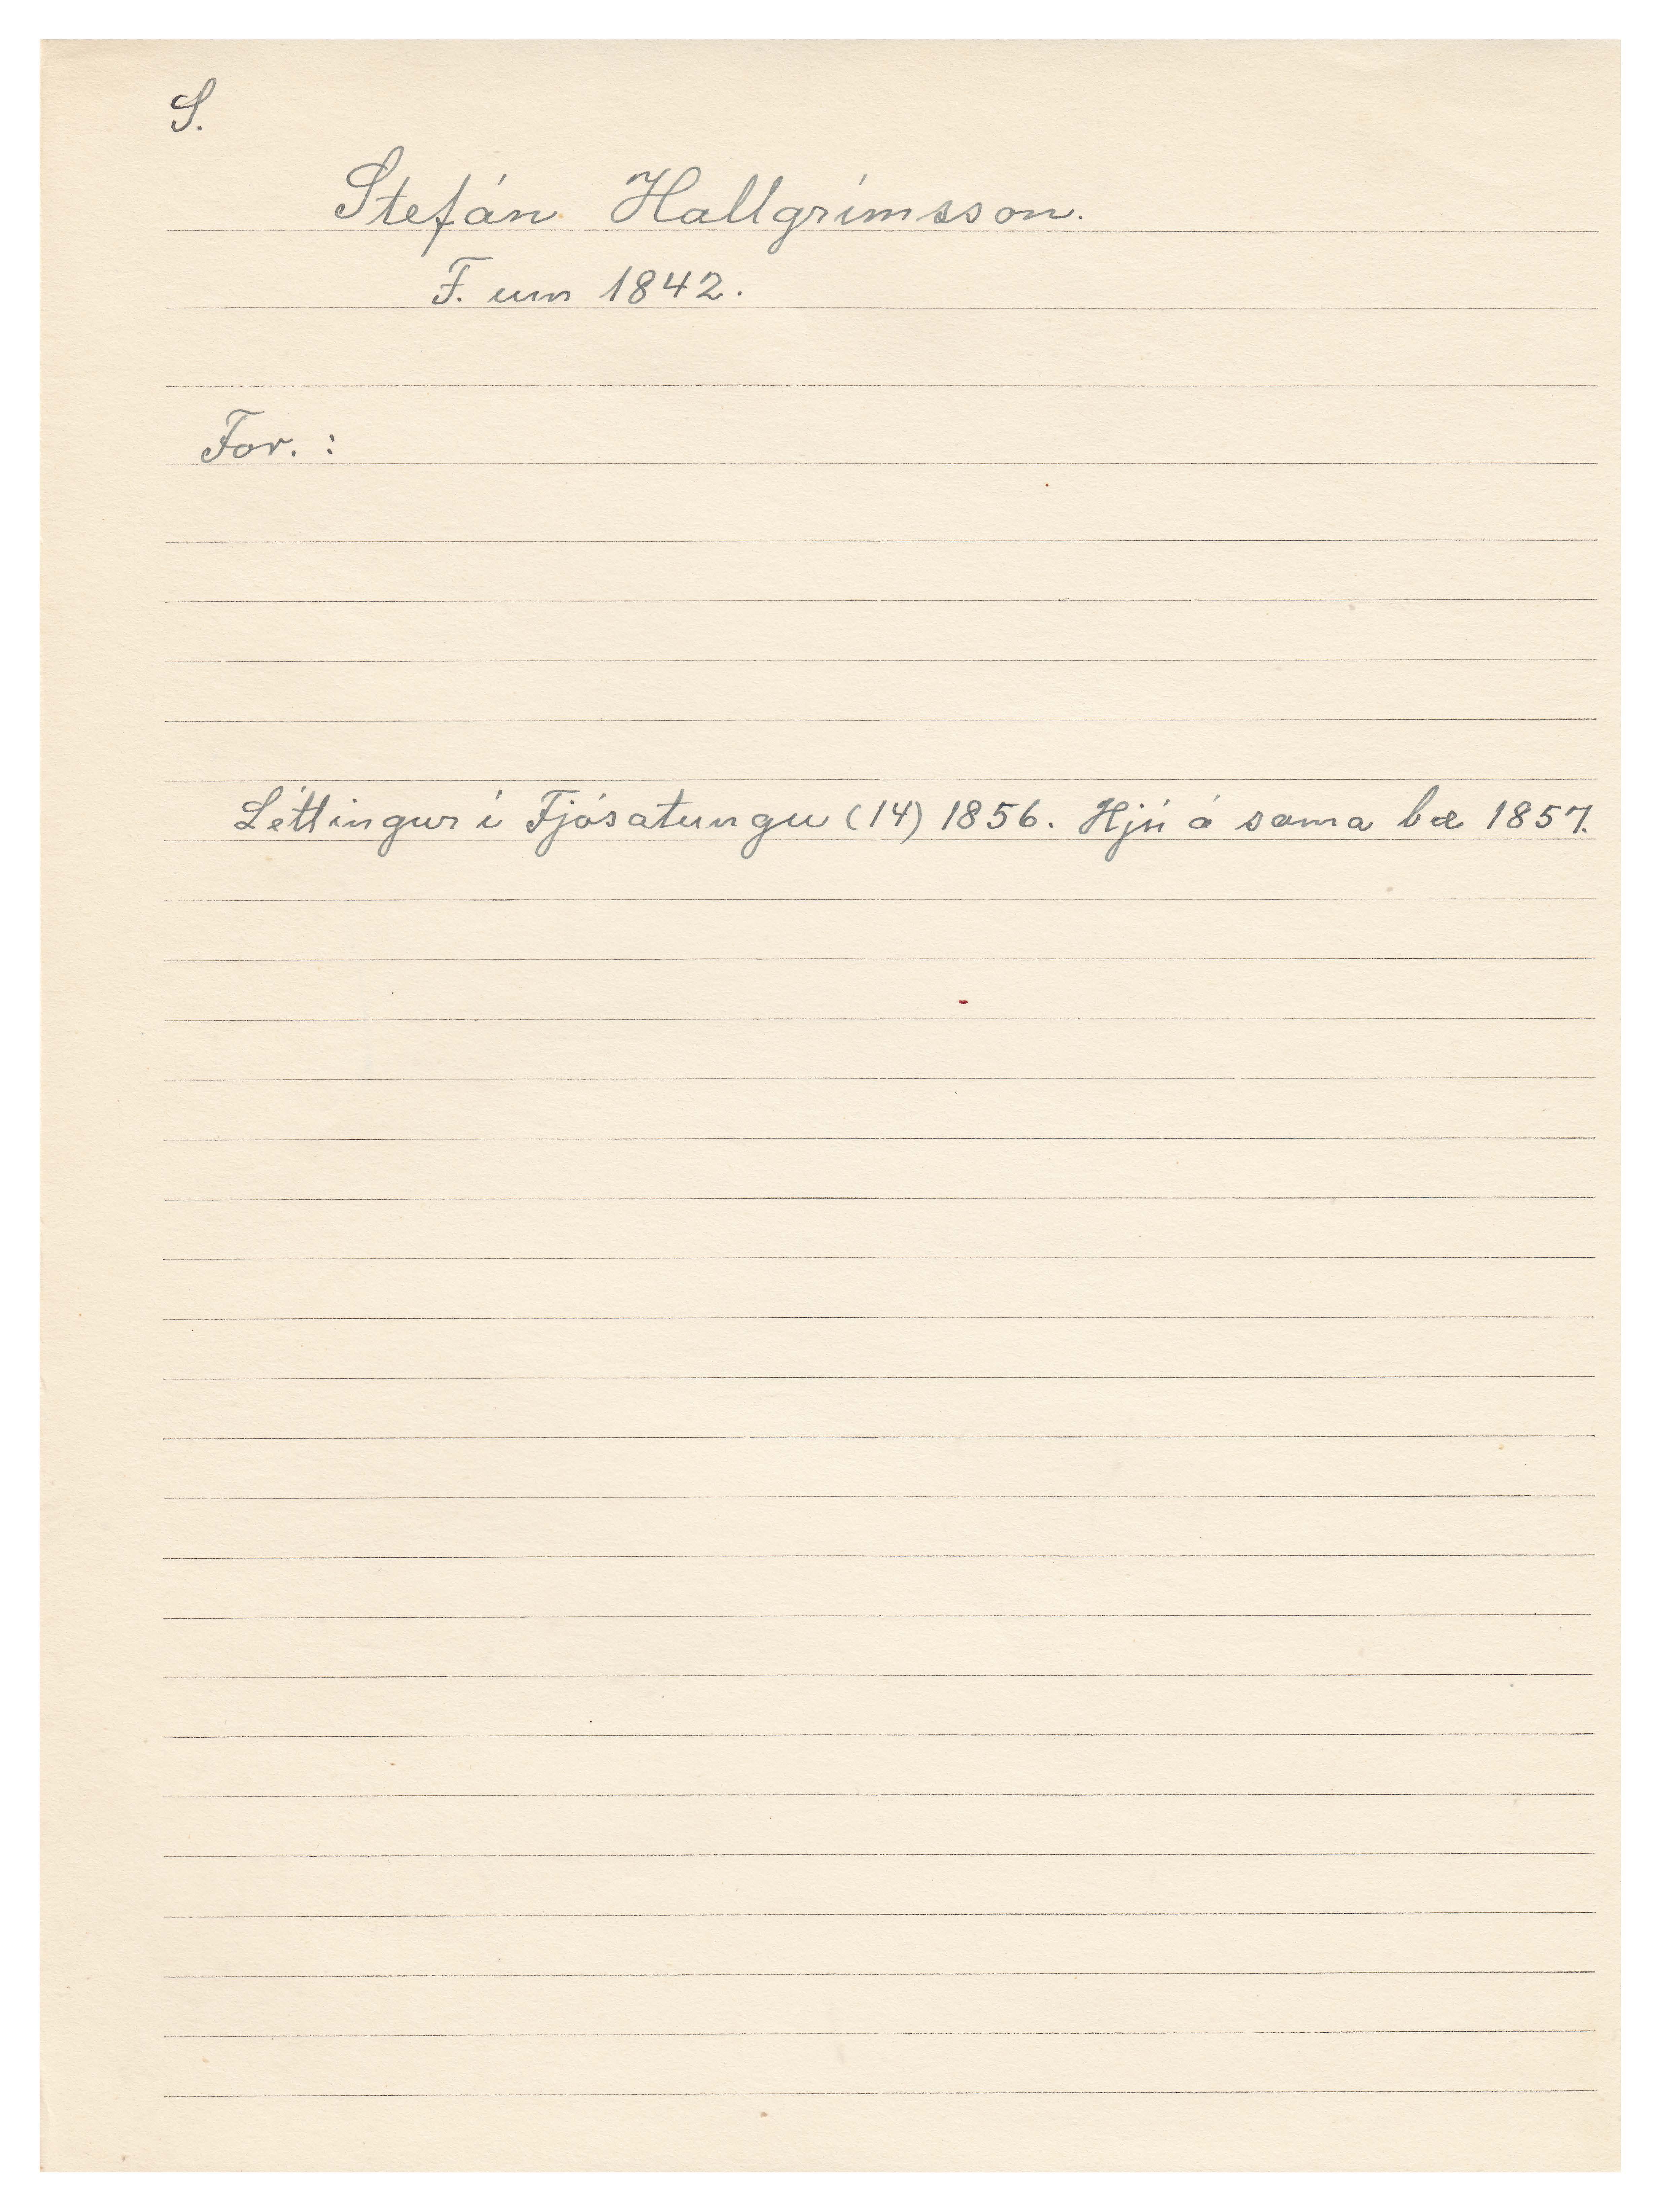 S.
Stefán Hallgrímsson.
F. um 1842.
For. :
Léttingur í Fjósatungu (14) 1856. Hjú á sama bæ 1857.